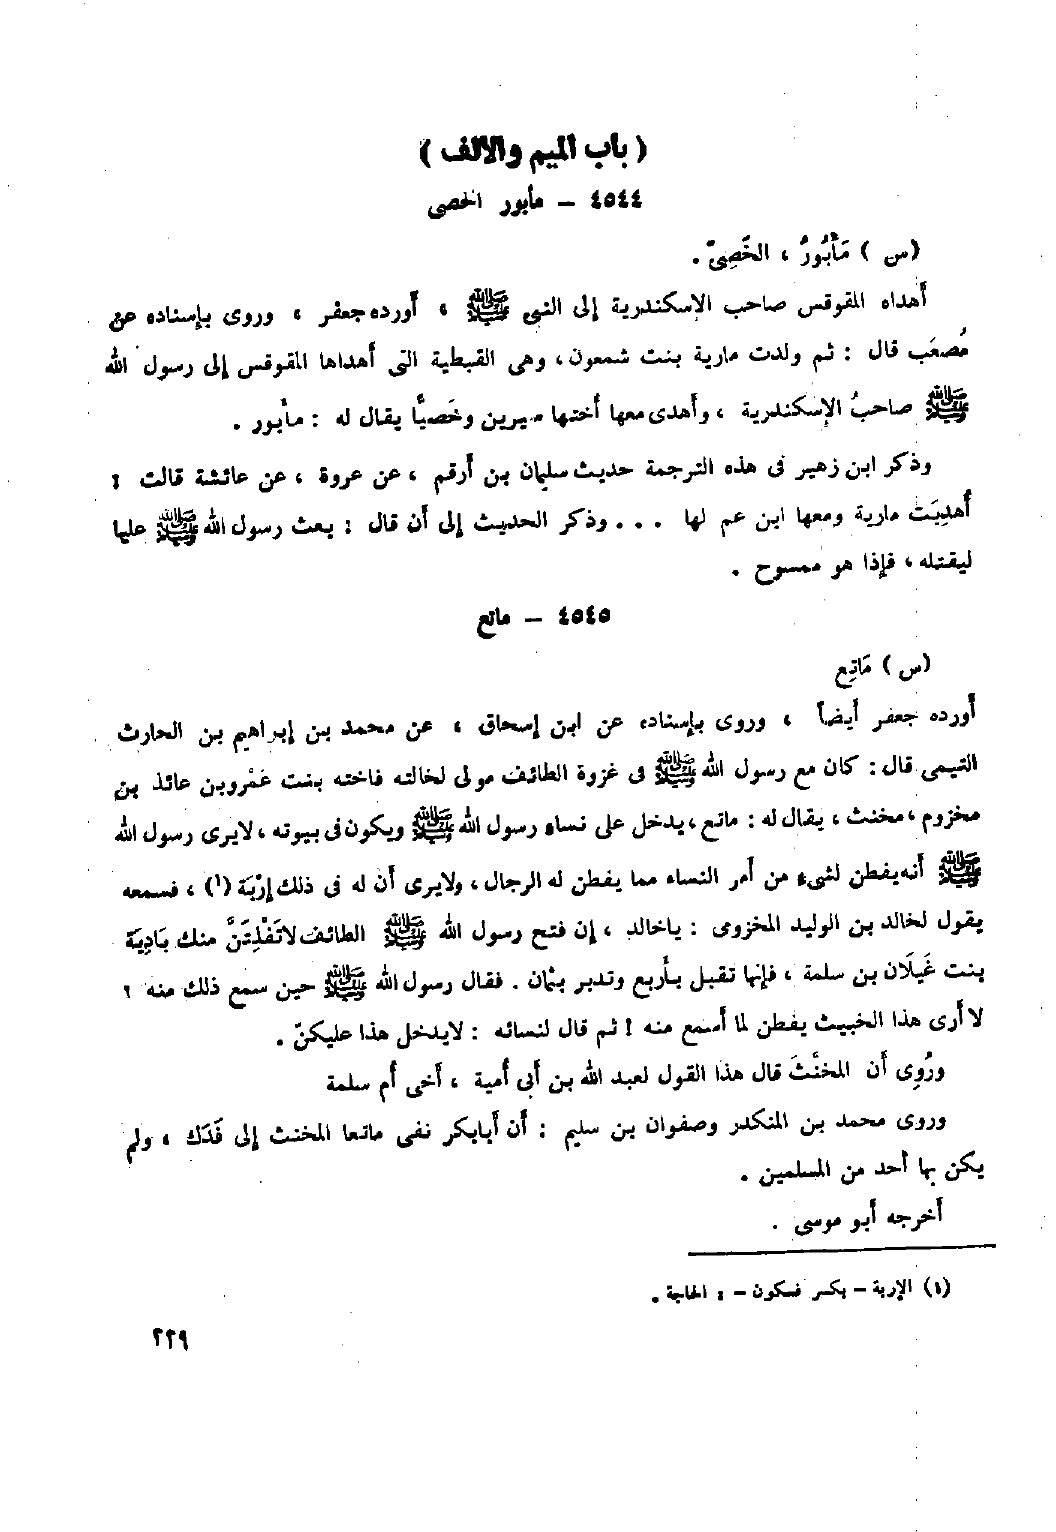 ( باب الميم والألف )
٤٥٤٤ – مأبور الخصى
(س) مَأْبُورٌ ، الخَصِىّ .
أهداه المقوقس صاحب الإسكندرية إلى النبى ﷺ ، أورده جعفر ، وروى بإسناده عن
مُصعَب قال : ثم ولدت مارية بنت شمعون ، وهى القبطية التى أهداها المقوقس إلى رسول الله
ﷺ صاحبُ الإسكندرية ، وأهدى معها أختها سيرين وخَصيًّا يقال له : مأبور .
وذكر ابن زهير فى هذه الترجمة حديث سليمان بن أرقم ، عن عروة ، عن عائشة قالت :
أُهدِيَت مارية ومعها ابن عم لها ... وذكر الحديث إلى أن قال : بعث رسول الله ﷺ عليا
ليقتله ، فإذا هو ممسوح .
٤٥٤٥ – ماتع
(س) مَاتِع
أورده جعفر أيضاً ، وروى بإسناده عن ابن إسحاق ، عن محمد بن إبراهيم بن الحارث
التيمى قال : كان مع رسول الله ﷺ فى غزوة الطائف مولى لخالته فاخته بنت عَمْرو بن عائذ بن
مخزوم ، مخنث ، يقال له : ماتع ، يدخل على نساء رسول الله ﷺ ويكون فى بيوته ، لا يرى رسول الله
ﷺ أنه يفطن لشىء من أمر النساء مما يفطن له الرجال ، ولا يرى أن له فى ذلك إِرْبَة (١) ، فسمعه
يقول لخالد بن الوليد المخزومى : يا خالد ، إن فتح رسول الله ﷺ الطائف لا تَفْلِتَنَّ منك بَادِيَة
بنت غَيلَان بن سلمة ، فإنها تقبل بأربع وتدبر بثمان . فقال رسول الله ﷺ حين سمع ذلك منه :
لا أرى هذا الخبيث يفطن لما أسمع منه ! ثم قال لنسائه : لا يدخل هذا عليكنّ .
ورُوِى أن المخنَّثَ قال هذا القول لعبد الله بن أبى أمية ، أخى أم سلمة
وروى محمد بن المنكدر وصفوان بن سليم : أن أبا بكر نفى ماتعا المخنث إلى فَدَك ، ولم
يكن بها أحد من المسلمين .
أخرجه أبو موسى .
(١) الإربة – بكسر فسكون – : الحاجة .
٢٢٩